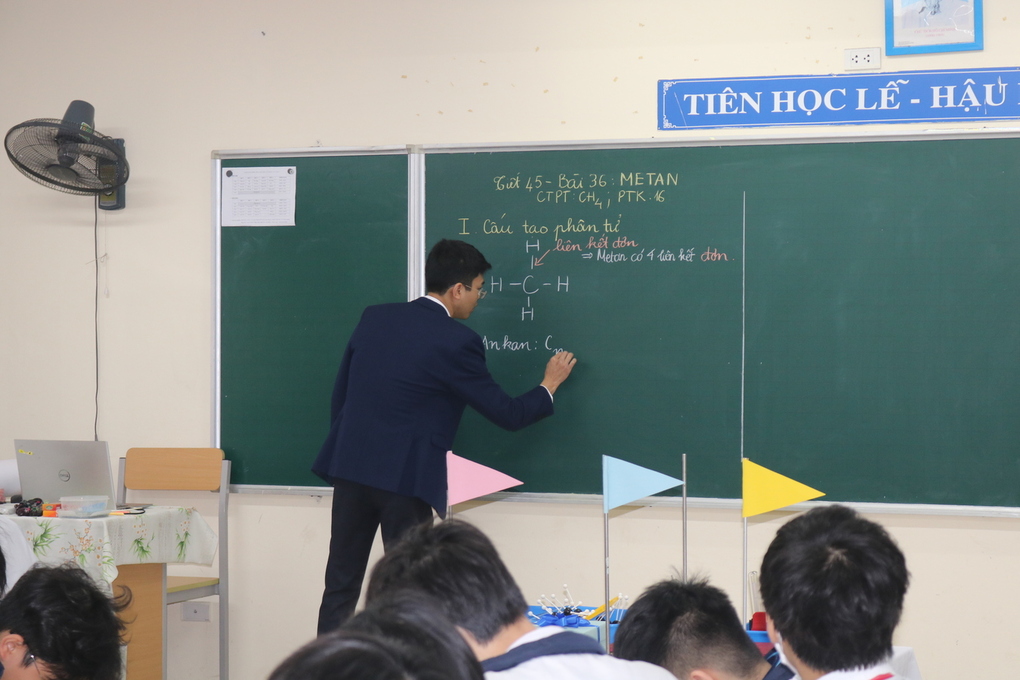 TIÊN HỌC LỄ - HẬU
Tiết 45 - Bài 36: METAN
CTPT: CH4; PTK: 16
I. Cấu tạo phân tử
H liên kết đơn
⇒ Metan có 4 liên kết đơn.
H - C - H
H
Ankan: Cn
DELL